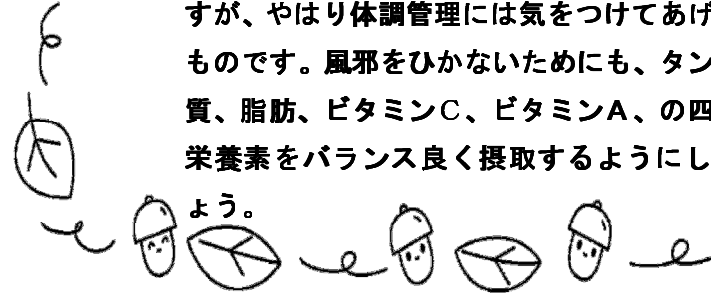 すが、やはり体調管理には気をつけてあげ
ものです。風邪をひかないためにも、タン
質、脂肪、ビタミンC、ビタミンA、の四
栄養素をバランス良く摂取するようにし
ょう。